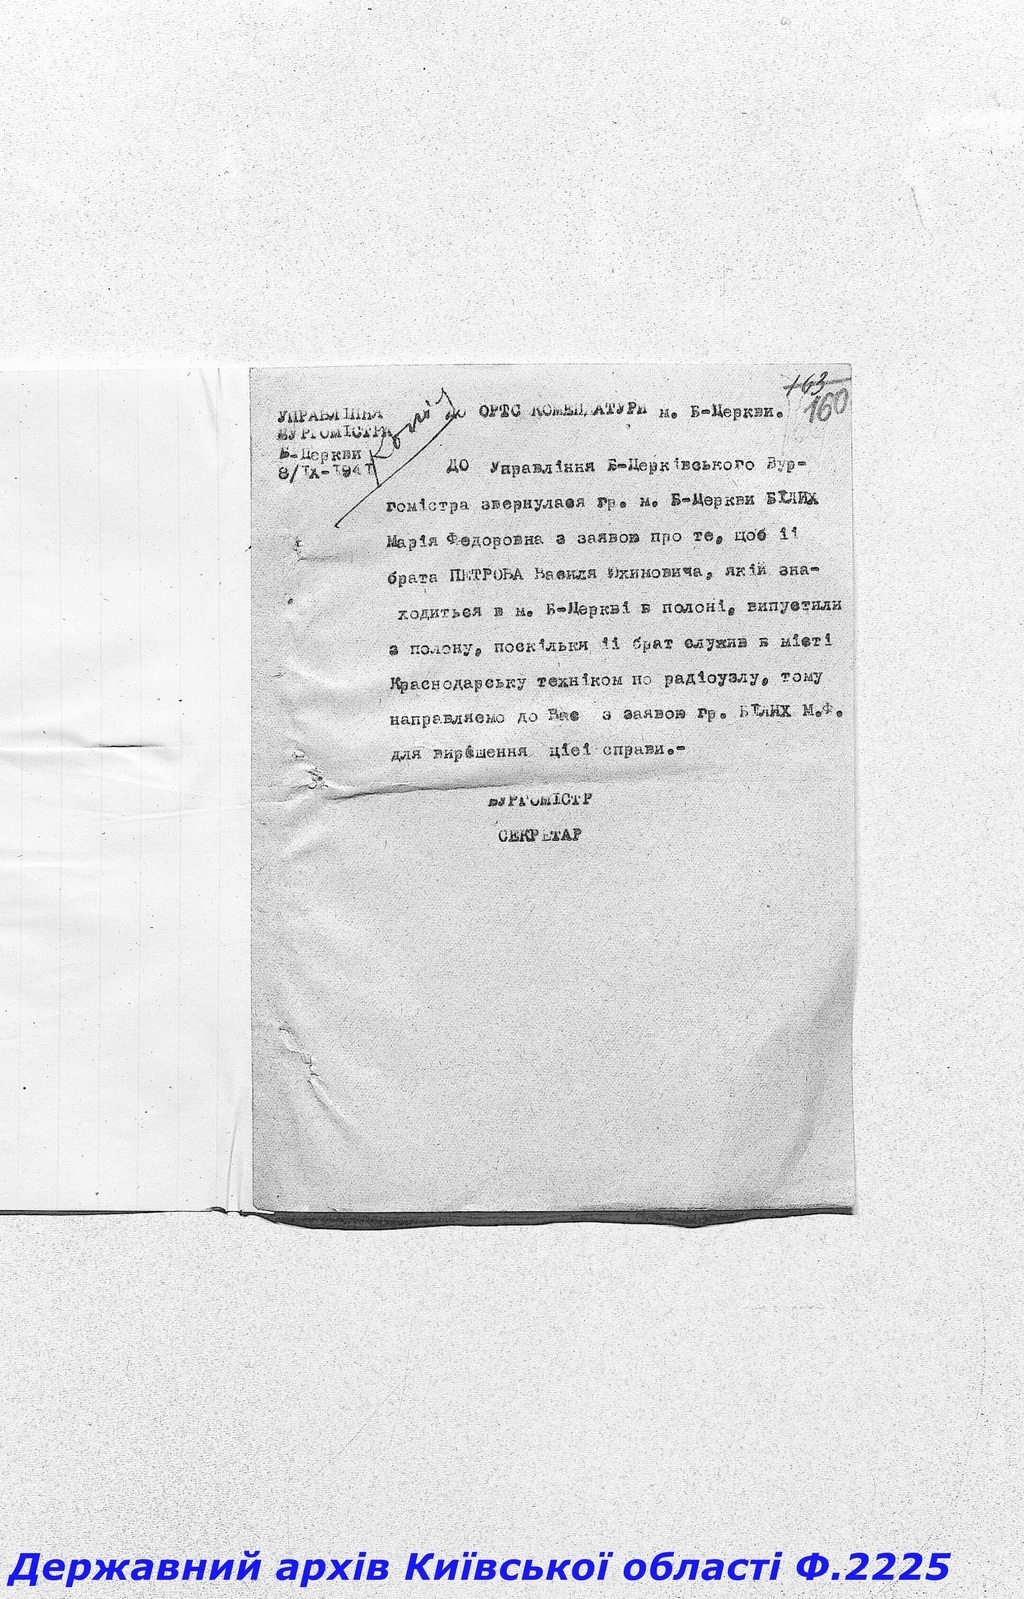 163
160
УПРАВЛІННЯ
БУРГОМІСТРА
Б-Церкви
8/IX-1941
Копія
до ОРТС КОМЕНДАТУРИ м. Б-Церкви.
ДО Управління Б-Церківського Бур-
гомістра звернулася гр. м. Б-Церкви БІЛИХ
Марія Федоровна з заявою про те, щоб іі
брата ПЕТРОВА Василя Юхимовича, якій зна-
ходиться в м. Б-Церкві в полоні, випустили
з полону, поскільки іі брат служив в місті
Краснодарську техніком по радіоузлу, тому
направляємо до Вас з заявою гр. БІЛИХ М.Ф.
для вирішення ціеі справи.-
БУРГОМІСТР
СЕКРЕТАР
Державний архів Київської області Ф.2225